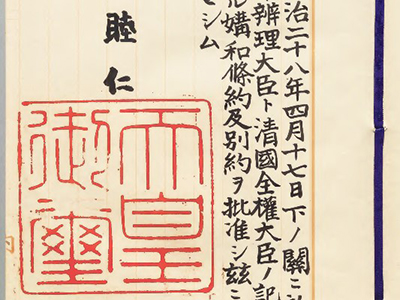 治二十八年四月十七日下ノ關ニ
辨理大臣ト清國全權大臣ノ記
ル媾和條約及別約ヲ批准シ茲ニ
シム
睦仁
天皇
御璽